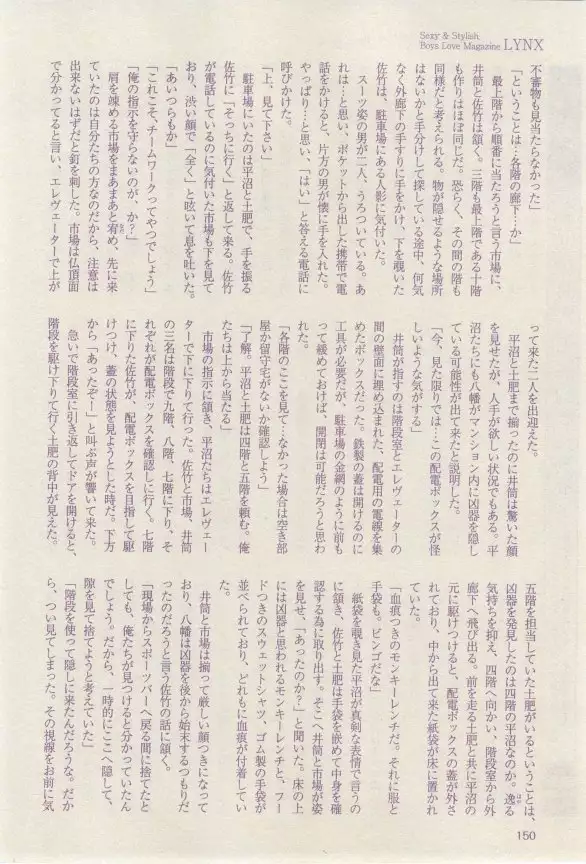 Sexy & Stylish
Boys Love Magazine LYNX
不審物も見当たらなかった」
「ということは…各階の廊下…か」
　最上階から順番に当たろうと言う市場に、
井筒と佐竹は頷く。三階も最上階である十階
も作りはほぼ同じだ。恐らく、その間の階も
同様だと考えられる。物が隠せるような場所
はないかと手分けして探している途中、何気
なく外廊下の手すりに手をかけ、下を覗いた
佐竹は、駐車場にある人影に気付いた。
　スーツ姿の男が二人、うろついている。あ
れは…と思い、ポケットから出した携帯で電
話をかけると、片方の男が懐に手を入れた。
やっぱり…と思い、「はい」と答える電話に
呼びかけた。
「上、見て下さい」
　駐車場にいたのは平沼と土肥で、手を振る
佐竹に「そっちに行く」と返して来る。佐竹
が電話しているのに気付いた市場も下を見て
おり、渋い顔で「全く」と呟いて息を吐いた。
「あいつらもか」
「これこそ、チームワークってやつでしょう」
「俺の指示を守らないのが、か?」
　肩を竦める市場をまあまあと宥め、先に来
ていたのは自分たちの方なのだから、注意は
出来ないはずだと釘を刺した。市場は仏頂面
で分かってると言い、エレヴェーターで上が
って来た二人を出迎えた。
　平沼と土肥まで揃ったのに井筒は驚いた顔
を見せたが、人手が欲しい状況でもある。平
沼たちにも八幡がマンション内に凶器を隠し
ている可能性が出て来たと説明した。
「今、見た限りでは…この配電ボックスが怪
しいような気がする」
　井筒が指すのは階段室とエレヴェーターの
間の壁面に埋め込まれた、配電用の電線を集
めたボックスだった。鉄製の蓋は開けるのに
工具が必要だが、駐車場の金網のように前も
って緩めておけば、開閉は可能だろうと思わ
れた。
「各階のここを見て…なかった場合は空き部
屋か留守宅がないか確認しよう」
「了解。平沼と土肥は四階と五階を頼む。俺
たちは上から当たる」
　市場の指示に頷き、平沼たちはエレヴェー
ターで下に下りて行った。佐竹と市場、井筒
の三名は階段で九階、八階、七階に下り、そ
れぞれが配電ボックスを確認しに行く。七階
に下りた佐竹が、配電ボックスを目指して駆
けつけ、蓋の状態を見ようとした時だ。下方
から「あったぞー」と叫ぶ声が響いて来た。
　急いで階段室に引き返してドアを開けると、
階段を駆け下りて行く土肥の背中が見えた。
五階を担当していた土肥がいるということは、
凶器を発見したのは四階の平沼なのか。逸る
気持ちを抑え、四階へ向かい、階段室から外
廊下へ飛び出る。前を走る土肥と共に平沼の
元に駆けつけると、配電ボックスの蓋が外さ
れており、中から出て来た紙袋が床に置かれ
ていた。
「血痕つきのモンキーレンチだ。それに服と
手袋も。ビンゴだな」
　紙袋を覗き見た平沼が真剣な表情で言うの
に頷き、佐竹と土肥は手袋を嵌めて中身を確
認する為に取り出す。そこへ井筒と市場が姿
を見せ、「あったのか?」と聞いた。床の上
には凶器と思われるモンキーレンチと、フー
ドつきのスウェットシャツ、ゴム製の手袋が
並べられており、どれもに血痕が付着してい
た。
　井筒と市場は揃って厳しい顔つきになって
おり、八幡は凶器を後から始末するつもりだ
ったのだろうと言う佐竹の話に頷く。
「現場からスポーツバーへ戻る間に捨てたと
しても、俺たちが見つけると分かっていたん
でしょう。だから、一時的にここへ隠して、
隙を見て捨てようと考えていた」
「階段を使って隠しに来たんだろうな。だか
ら、つい見てしまった。その視線をお前に気
150